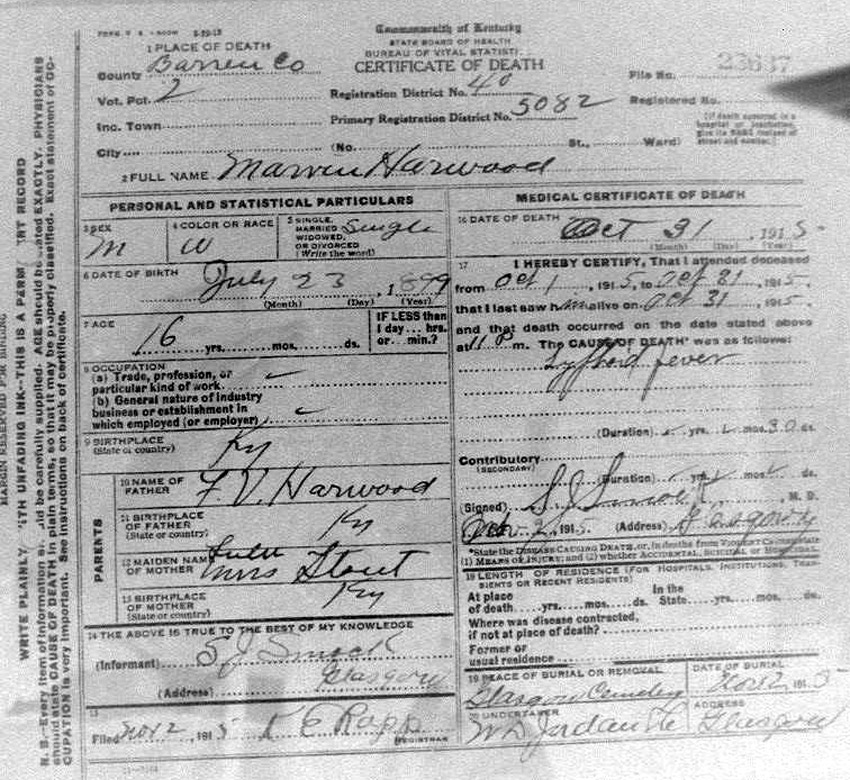 Commonwealth of Kentucky
STATE BOARD OF HEALTH
BUREAU OF VITAL STATISTI
CERTIFICATE OF DEATH
1 PLACE OF DEATH
County Barren Co
Vot. Pct. 2
Inc. Town
City (No. St., Ward)
Registration District No. 40
Primary Registration District No. 5082
File No. 23637
Registered No.
[If death occurred in a hospital or institution, give its NAME instead of street and number.]
2 FULL NAME Marvin Harwood
PERSONAL AND STATISTICAL PARTICULARS
3 SEX
M
4 COLOR OR RACE
W
5 SINGLE, MARRIED WIDOWED, OR DIVORCED (Write the word)
Single
6 DATE OF BIRTH
July 23, 1899
(Month) (Day) (Year)
7 AGE
16 yrs. mos. ds.
IF LESS than 1 day... hrs. or... min.?
8 OCCUPATION
(a) Trade, profession, or
particular kind of work
(b) General nature of industry
business or establishment in
which employed (or employer)
9 BIRTHPLACE
(State or country)
Ky
PARENTS
10 NAME OF FATHER
F. V. Harwood
11 BIRTHPLACE OF FATHER
(State or country)
Ky
12 MAIDEN NAME OF MOTHER
Lulu
Mrs Stout
13 BIRTHPLACE OF MOTHER
(State or country)
Ky
14 THE ABOVE IS TRUE TO THE BEST OF MY KNOWLEDGE
(Informant) S J Smock
(Address) Glasgow
15
Filed Nov 2, 1915 E Rapp
REGISTRAR
MEDICAL CERTIFICATE OF DEATH
16 DATE OF DEATH
Oct 31, 1915
(Month) (Day) (Year)
17 I HEREBY CERTIFY, That I attended deceased
from Oct 1, 1915, to Oct 31 1915,
that I last saw him alive on Oct 31, 1915,
and that death occurred on the date stated above
at 11 P m. The CAUSE OF DEATH* was as follows:
Typhoid fever
(Duration) yrs. mos. 30 ds.
Contributory
(SECONDARY)
(Duration) yrs. mos. ds.
(Signed) S J Smock, M. D.
Nov 2, 1915 (Address) Glasgow Ky
*State the DISEASE CAUSING DEATH, or, in deaths from VIOLENT CAUSES state
(1) MEANS OF INJURY; and (2) whether ACCIDENTAL, SUICIDAL or HOMICIDAL.
18 LENGTH OF RESIDENCE (FOR HOSPITALS, INSTITUTIONS, TRANSIENTS OR RECENT RESIDENTS)
At place of death yrs. mos. ds. In the State yrs. mos. ds.
Where was disease contracted,
if not at place of death?
Former or
usual residence
19 PLACE OF BURIAL OR REMOVAL
Glasgow Cemetery
DATE OF BURIAL
Nov 2, 1915
20 UNDERTAKER
W D Jordan
ADDRESS
Glasgow
MARGIN RESERVED FOR BINDING
WRITE PLAINLY WITH UNFADING INK--THIS IS A PERM RT RECORD
N. B.--Every item of information should be carefully supplied. AGE should be stated EXACTLY. PHYSICIANS
should state CAUSE OF DEATH in plain terms, so that it may be properly classified. Exact statement of OC-
CUPATION is very important. See instructions on back of certificate.